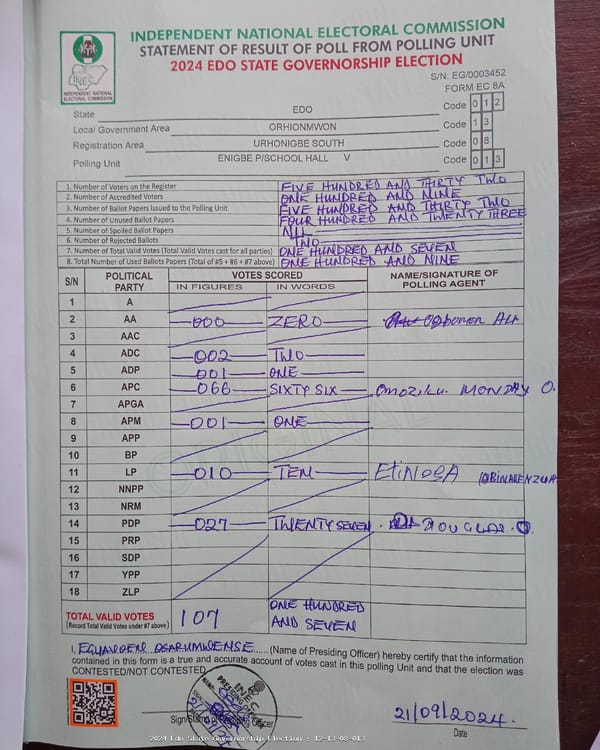 INDEPENDENT NATIONAL ELECTORAL COMMISSION
STATEMENT OF RESULT OF POLL FROM POLLING UNIT
2024 EDO STATE GOVERNORSHIP ELECTION
S/N: EG/0003452
FORM EC 8A
INEC
INDEPENDENT NATIONAL
ELECTORAL COMMISSION
State EDO Code 0 1 2
Local Government Area ORHIONMWON Code 1 3
Registration Area URHONIGBE SOUTH Code 0 8
Polling Unit ENIGBE P/SCHOOL HALL V Code 0 1 3
1. Number of Voters on the Register FIVE HUNDRED AND THIRTY TWO
2. Number of Accredited Voters ONE HUNDRED AND NINE
3. Number of Ballot Papers Issued to the Polling Unit FIVE HUNDRED AND THIRTY TWO
4. Number of Unused Ballot Papers FOUR HUNDRED AND TWENTY THREE
5. Number of Spoiled Ballot Papers NIL
6. Number of Rejected Ballots TWO
7. Number of Total Valid Votes (Total Valid Votes cast for all parties) ONE HUNDRED AND SEVEN
8. Total Number of Used Ballots Papers (Total of #5 + #6 + #7 above) ONE HUNDRED AND NINE
S/N POLITICAL PARTY VOTES SCORED NAME/SIGNATURE OF POLLING AGENT
IN FIGURES IN WORDS
1 A
2 AA 000 ZERO
3 AAC
4 ADC 002 TWO
5 ADP 001 ONE
6 APC 066 SIXTY SIX OMOZIKU. MONDAY O.
7 APGA
8 APM 001 ONE
9 APP
10 BP
11 LP 010 TEN
12 NNPP
13 NRM
14 PDP 027 TWENTY SEVEN
15 PRP
16 SDP
17 YPP
18 ZLP
TOTAL VALID VOTES 107 ONE HUNDRED
(Record Total Valid Votes under #7 above) AND SEVEN
I, EGUAVOEN OSARUMWENSE (Name of Presiding Officer) hereby certify that the information
contained in this form is a true and accurate account of votes cast in this polling Unit and that the election was
CONTESTED/NOT CONTESTED
INEC
Sign/Stamp of Presiding Officer
21/09/2024.
Date
2024 Edo State Governorship Election : 12-13-08-013